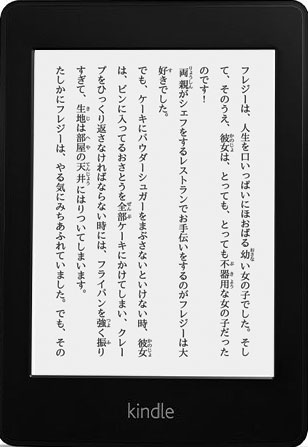 フレジーは、人生を口いっぱいにほおばる幼い女の子でした。そし
て、そのうえ、彼女は、とっても、とっても不器用な女の子だった
のです！
両親がシェフをするレストランでお手伝いをするのがフレジーは大
好きでした。
でも、ケーキにパウダーシュガーをまぶさないといけない時、彼女
は、ビンに入ってるおさとうを全部ケーキにかけてしまい、クレー
プをひっくり返さなければならない時には、フライパンを強く振り
すぎて、生地は部屋の天井にはりついてしまいます。
たしかにフレジーは、やる気にみちあふれていました。でも、その
kindle